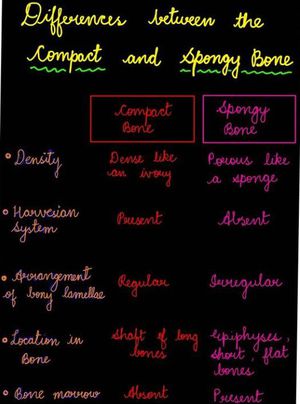 Differences between the
Compact and Spongy Bone
Compact
Bone
Spongy
Bone
• Density
Dense like
an ivory
Porous like
a sponge
• Harvesian
System
Present
Absent
• Arrangement
of bony lamellae
Regular
Irregular
• Location in
Bone
Shaft of long
bones
Epiphyses,
short, flat
bones
• Bone marrow
Absent
Present